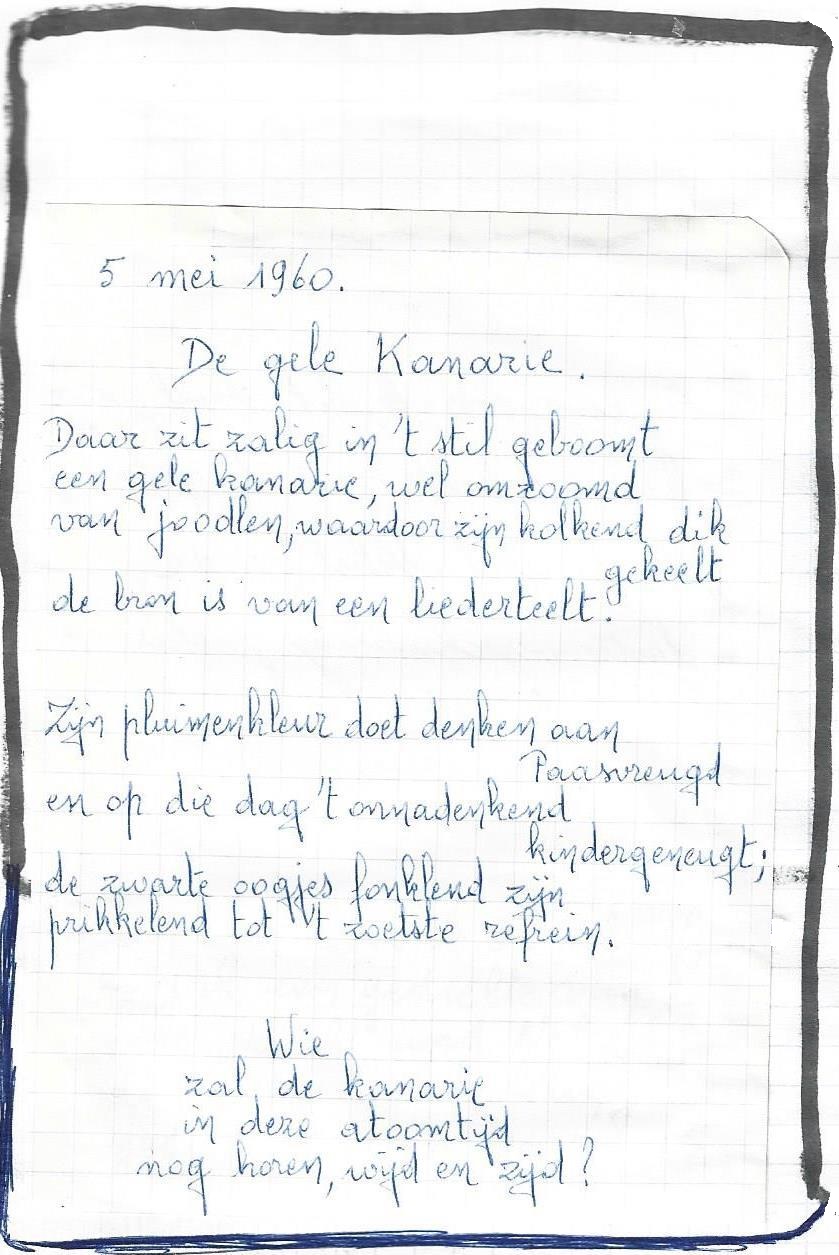 5 mei 1960.
De gele Kanarie.
Daar zit zalig in 't stil geboomt
een gele kanarie, wel omzoomd
van joodlen, waardoor zijn kolkend dik
gekeelt
de bron is van een liederteelt.
Zijn pluimenkleur doet denken aan
Paasvreugd
en op die dag 't onnadenkend
kindergeneugt;
de zwarte oogjes fonklend zijn
prikkelend tot 't zoetste refrein.
Wie
zal de kanarie
in deze atoomtijd
nog horen, wijd en zijd?